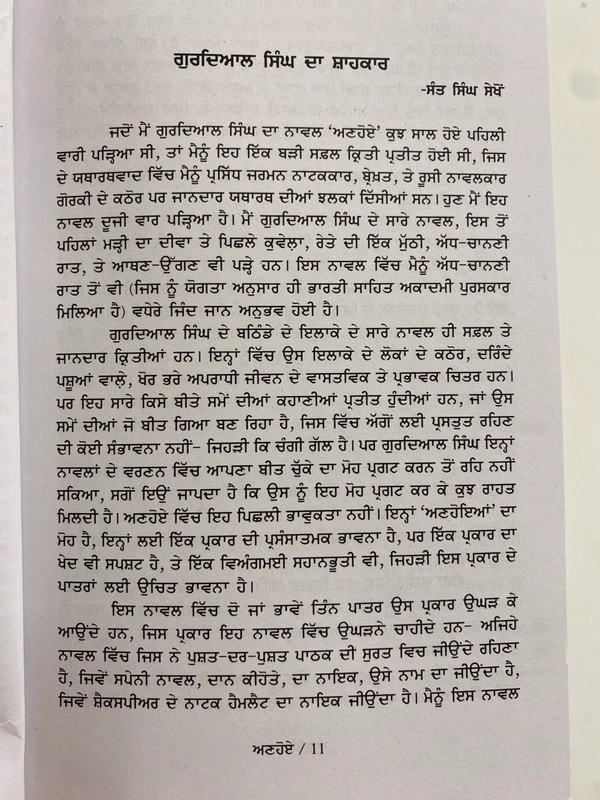 ਗੁਰਦਿਆਲ ਸਿੰਘ ਦਾ ਸ਼ਾਹਕਾਰ
-ਸੰਤ ਸਿੰਘ ਸੇਖੋਂ
ਜਦੋਂ ਮੈਂ ਗੁਰਦਿਆਲ ਸਿੰਘ ਦਾ ਨਾਵਲ ‘ਅਣਹੋਏ’ ਕੁਝ ਸਾਲ ਹੋਏ ਪਹਿਲੀ
ਵਾਰੀ ਪੜ੍ਹਿਆ ਸੀ, ਤਾਂ ਮੈਨੂੰ ਇਹ ਇੱਕ ਬੜੀ ਸਫ਼ਲ ਕ੍ਰਿਤੀ ਪ੍ਰਤੀਤ ਹੋਈ ਸੀ, ਜਿਸ
ਦੇ ਯਥਾਰਥਵਾਦ ਵਿੱਚ ਮੈਨੂੰ ਪ੍ਰਸਿੱਧ ਜਰਮਨ ਨਾਟਕਕਾਰ, ਬ੍ਰੇਖ਼ਤ, ਤੇ ਰੂਸੀ ਨਾਵਲਕਾਰ
ਗੋਰਕੀ ਦੇ ਕਠੋਰ ਪਰ ਜਾਨਦਾਰ ਯਥਾਰਥ ਦੀਆਂ ਝਲਕਾਂ ਦਿੱਸੀਆਂ ਸਨ। ਹੁਣ ਮੈਂ ਇਹ
ਨਾਵਲ ਦੂਜੀ ਵਾਰ ਪੜ੍ਹਿਆ ਹੈ। ਮੈਂ ਗੁਰਦਿਆਲ ਸਿੰਘ ਦੇ ਸਾਰੇ ਨਾਵਲ, ਇਸ ਤੋਂ
ਪਹਿਲਾਂ ਮੜ੍ਹੀ ਦਾ ਦੀਵਾ ਤੇ ਪਿਛਲੇ ਕੁਵੇਲਾ, ਰੇਤੇ ਦੀ ਇੱਕ ਮੁੱਠੀ, ਅੱਧ-ਚਾਨਣੀ
ਰਾਤ, ਤੇ ਆਥਣ-ਉੱਗਣ ਵੀ ਪੜ੍ਹੇ ਹਨ। ਇਸ ਨਾਵਲ ਵਿੱਚ ਮੈਨੂੰ ਅੱਧ-ਚਾਨਣੀ
ਰਾਤ ਤੋਂ ਵੀ (ਜਿਸ ਨੂੰ ਯੋਗਤਾ ਅਨੁਸਾਰ ਹੀ ਭਾਰਤੀ ਸਾਹਿਤ ਅਕਾਦਮੀ ਪੁਰਸਕਾਰ
ਮਿਲਿਆ ਹੈ) ਵਧੇਰੇ ਜਿੰਦ ਜਾਨ ਅਨੁਭਵ ਹੋਈ ਹੈ।
ਗੁਰਦਿਆਲ ਸਿੰਘ ਦੇ ਬਠਿੰਡੇ ਦੇ ਇਲਾਕੇ ਦੇ ਸਾਰੇ ਨਾਵਲ ਹੀ ਸਫ਼ਲ ਤੇ
ਜਾਨਦਾਰ ਕ੍ਰਿਤੀਆਂ ਹਨ। ਇਨ੍ਹਾਂ ਵਿੱਚ ਉਸ ਇਲਾਕੇ ਦੇ ਲੋਕਾਂ ਦੇ ਕਠੋਰ, ਦਰਿੰਦੇ
ਪਸ਼ੂਆਂ ਵਾਲੇ, ਖੋਰ ਭਰੇ ਅਪਰਾਧੀ ਜੀਵਨ ਦੇ ਵਾਸਤਵਿਕ ਤੇ ਪ੍ਰਭਾਵਕ ਚਿਤਰ ਹਨ।
ਪਰ ਇਹ ਸਾਰੇ ਕਿਸੇ ਬੀਤੇ ਸਮੇਂ ਦੀਆਂ ਕਹਾਣੀਆਂ ਪ੍ਰਤੀਤ ਹੁੰਦੀਆਂ ਹਨ, ਜਾਂ ਉਸ
ਸਮੇਂ ਦੀਆਂ ਜੋ ਬੀਤ ਗਿਆ ਬਣ ਰਹਾ ਹੈ, ਜਿਸ ਵਿੱਚ ਅੱਗੋਂ ਲਈ ਪ੍ਰਸਤੁਤ ਰਹਿਣ
ਦੀ ਕੋਈ ਸੰਭਾਵਨਾ ਨਹੀਂ- ਜਿਹੜੀ ਕਿ ਚੰਗੀ ਗੱਲ ਹੈ। ਪਰ ਗੁਰਦਿਆਲ ਸਿੰਘ ਇਨ੍ਹਾਂ
ਨਾਵਲਾਂ ਦੇ ਵਰਣਨ ਵਿੱਚ ਆਪਣਾ ਬੀਤ ਚੁੱਕੇ ਦਾ ਮੋਹ ਪ੍ਰਗਟ ਕਰਨ ਤੋਂ ਰਹਿ ਨਹੀਂ
ਸਕਿਆ, ਸਗੋਂ ਇਉਂ ਜਾਪਦਾ ਹੈ ਕਿ ਉਸ ਨੂੰ ਇਹ ਮੋਹ ਪ੍ਰਗਟ ਕਰ ਕੇ ਕੁਝ ਰਾਹਤ
ਮਿਲਦੀ ਹੈ। ਅਣਹੋਏ ਵਿੱਚ ਇਹ ਪਿਛਲੀ ਭਾਵੁਕਤਾ ਨਹੀਂ। ਇਨ੍ਹਾਂ ‘ਅਣਹੋਇਆਂ’ ਦਾ
ਮੋਹ ਹੈ, ਇਨ੍ਹਾਂ ਲਈ ਇੱਕ ਪ੍ਰਕਾਰ ਦੀ ਪ੍ਰਸੰਸਾਤਮਕ ਭਾਵਨਾ ਹੈ, ਪਰ ਇੱਕ ਪ੍ਰਕਾਰ ਦਾ
ਖੇਦ ਵੀ ਸਪਸ਼ਟ ਹੈ, ਤੇ ਇੱਕ ਵਿਅੰਗਮਈ ਸਹਾਨਭੂਤੀ ਵੀ, ਜਿਹੜੀ ਇਸ ਪ੍ਰਕਾਰ ਦੇ
ਪਾਤਰਾਂ ਲਈ ਉਚਿਤ ਭਾਵਨਾ ਹੈ।
ਇਸ ਨਾਵਲ ਵਿੱਚ ਦੋ ਜਾਂ ਭਾਵੇਂ ਤਿੰਨ ਪਾਤਰ ਉਸ ਪ੍ਰਕਾਰ ਉਘੜ ਕੇ
ਆਉਂਦੇ ਹਨ, ਜਿਸ ਪ੍ਰਕਾਰ ਇਹ ਨਾਵਲ ਵਿੱਚ ਉਘੜਨੇ ਚਾਹੀਦੇ ਹਨ- ਅਜਿਹੇ
ਨਾਵਲ ਵਿੱਚ ਜਿਸ ਨੇ ਪੁਸ਼ਤ-ਦਰ-ਪੁਸ਼ਤ ਪਾਠਕ ਦੀ ਸੁਰਤ ਵਿਚ ਜੀਉਂਦੇ ਰਹਿਣਾ
ਹੈ, ਜਿਵੇਂ ਸਪੇਨੀ ਨਾਵਲ, ਦਾਨ ਕੀਹੋਤੇ, ਦਾ ਨਾਇਕ, ਉਸੇ ਨਾਮ ਦਾ ਜੀਉਂਦਾ ਹੈ,
ਜਿਵੇਂ ਸ਼ੈਕਸਪੀਅਰ ਦੇ ਨਾਟਕ ਹੈਮਲੈਟ ਦਾ ਨਾਇਕ ਜੀਉਂਦਾ ਹੈ। ਮੈਨੂੰ ਇਸ ਨਾਵਲ
ਅਣਹੋਏ / 11